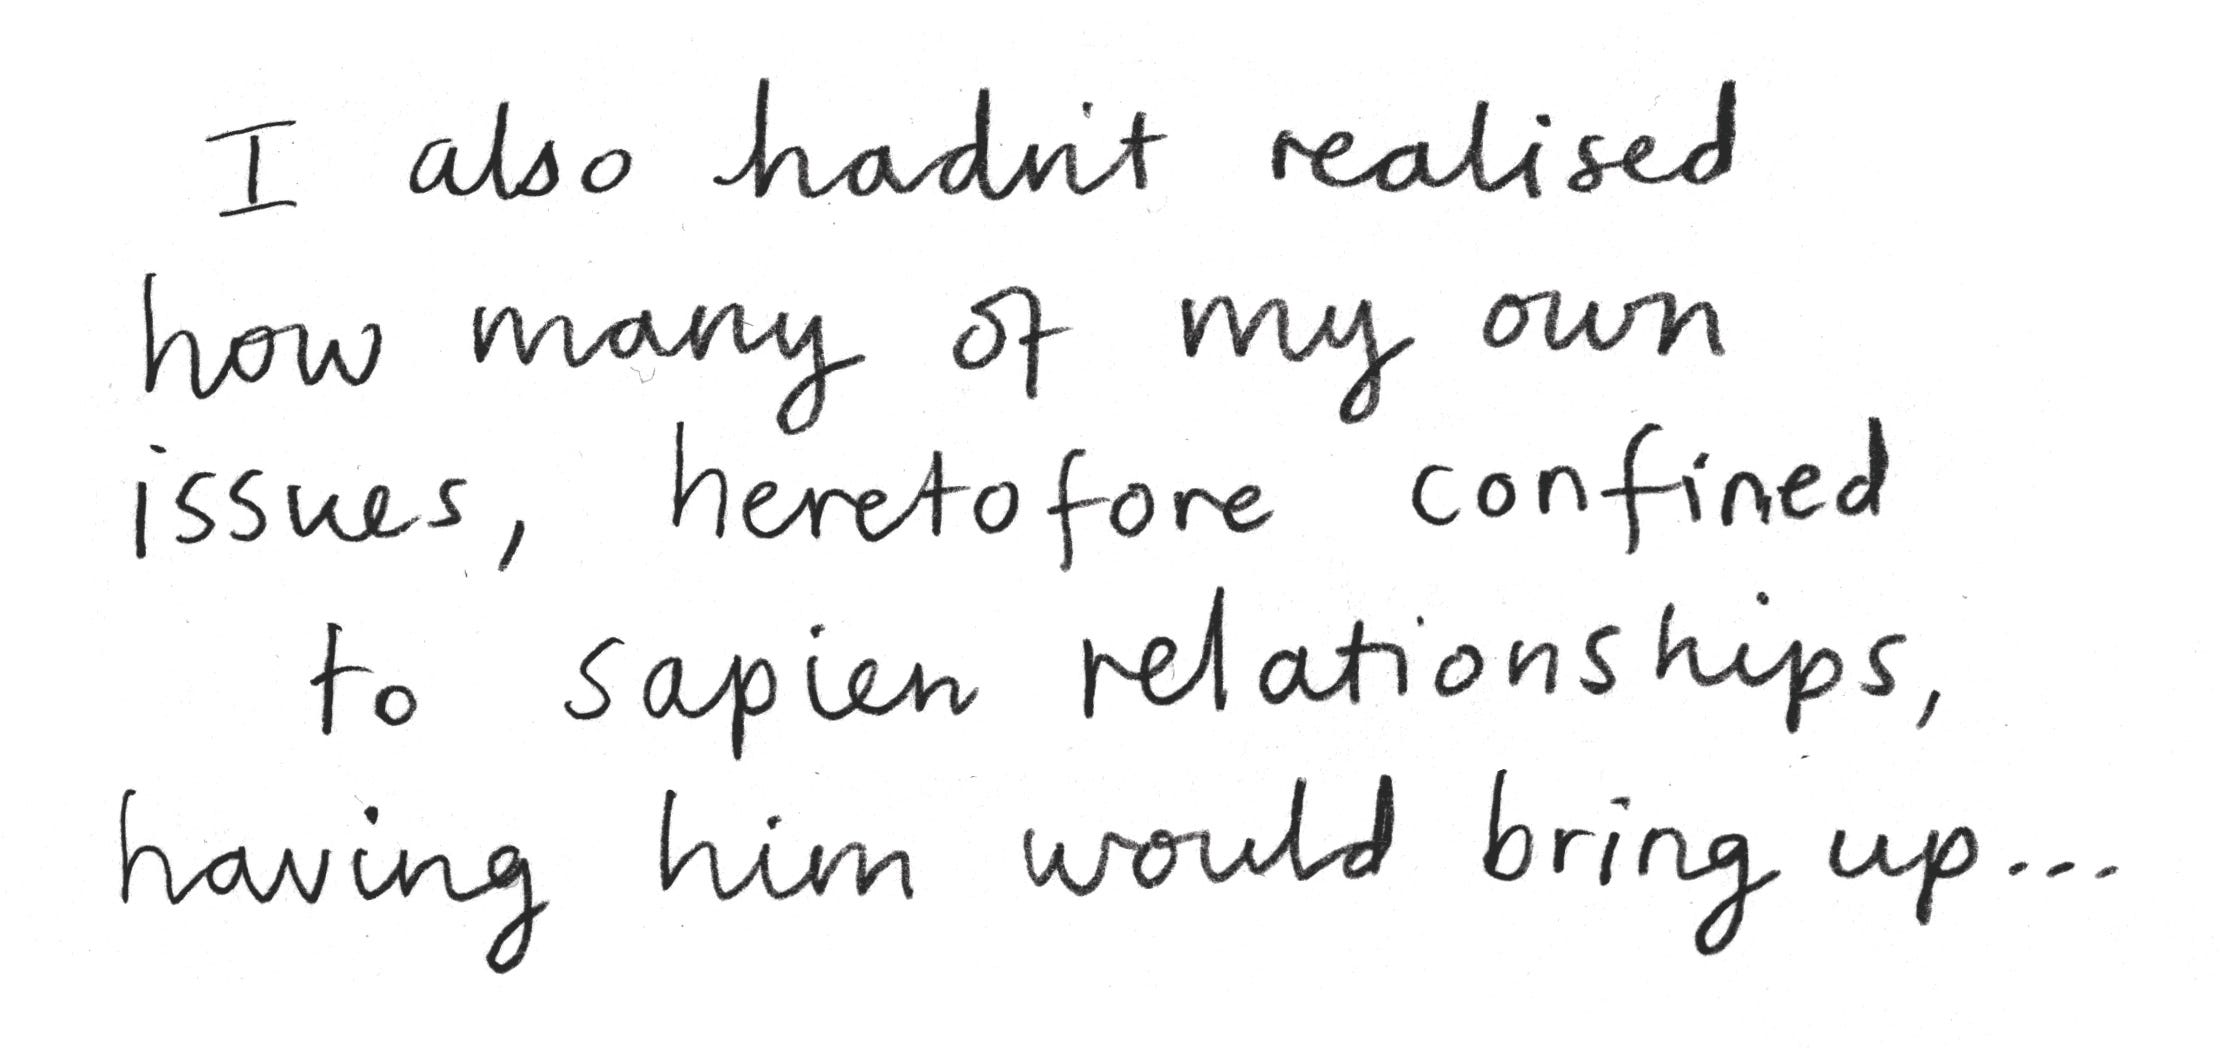 I also hadn't realised
how many of my own
issues, heretofore confined
to sapien relationships,
having him would bring up...